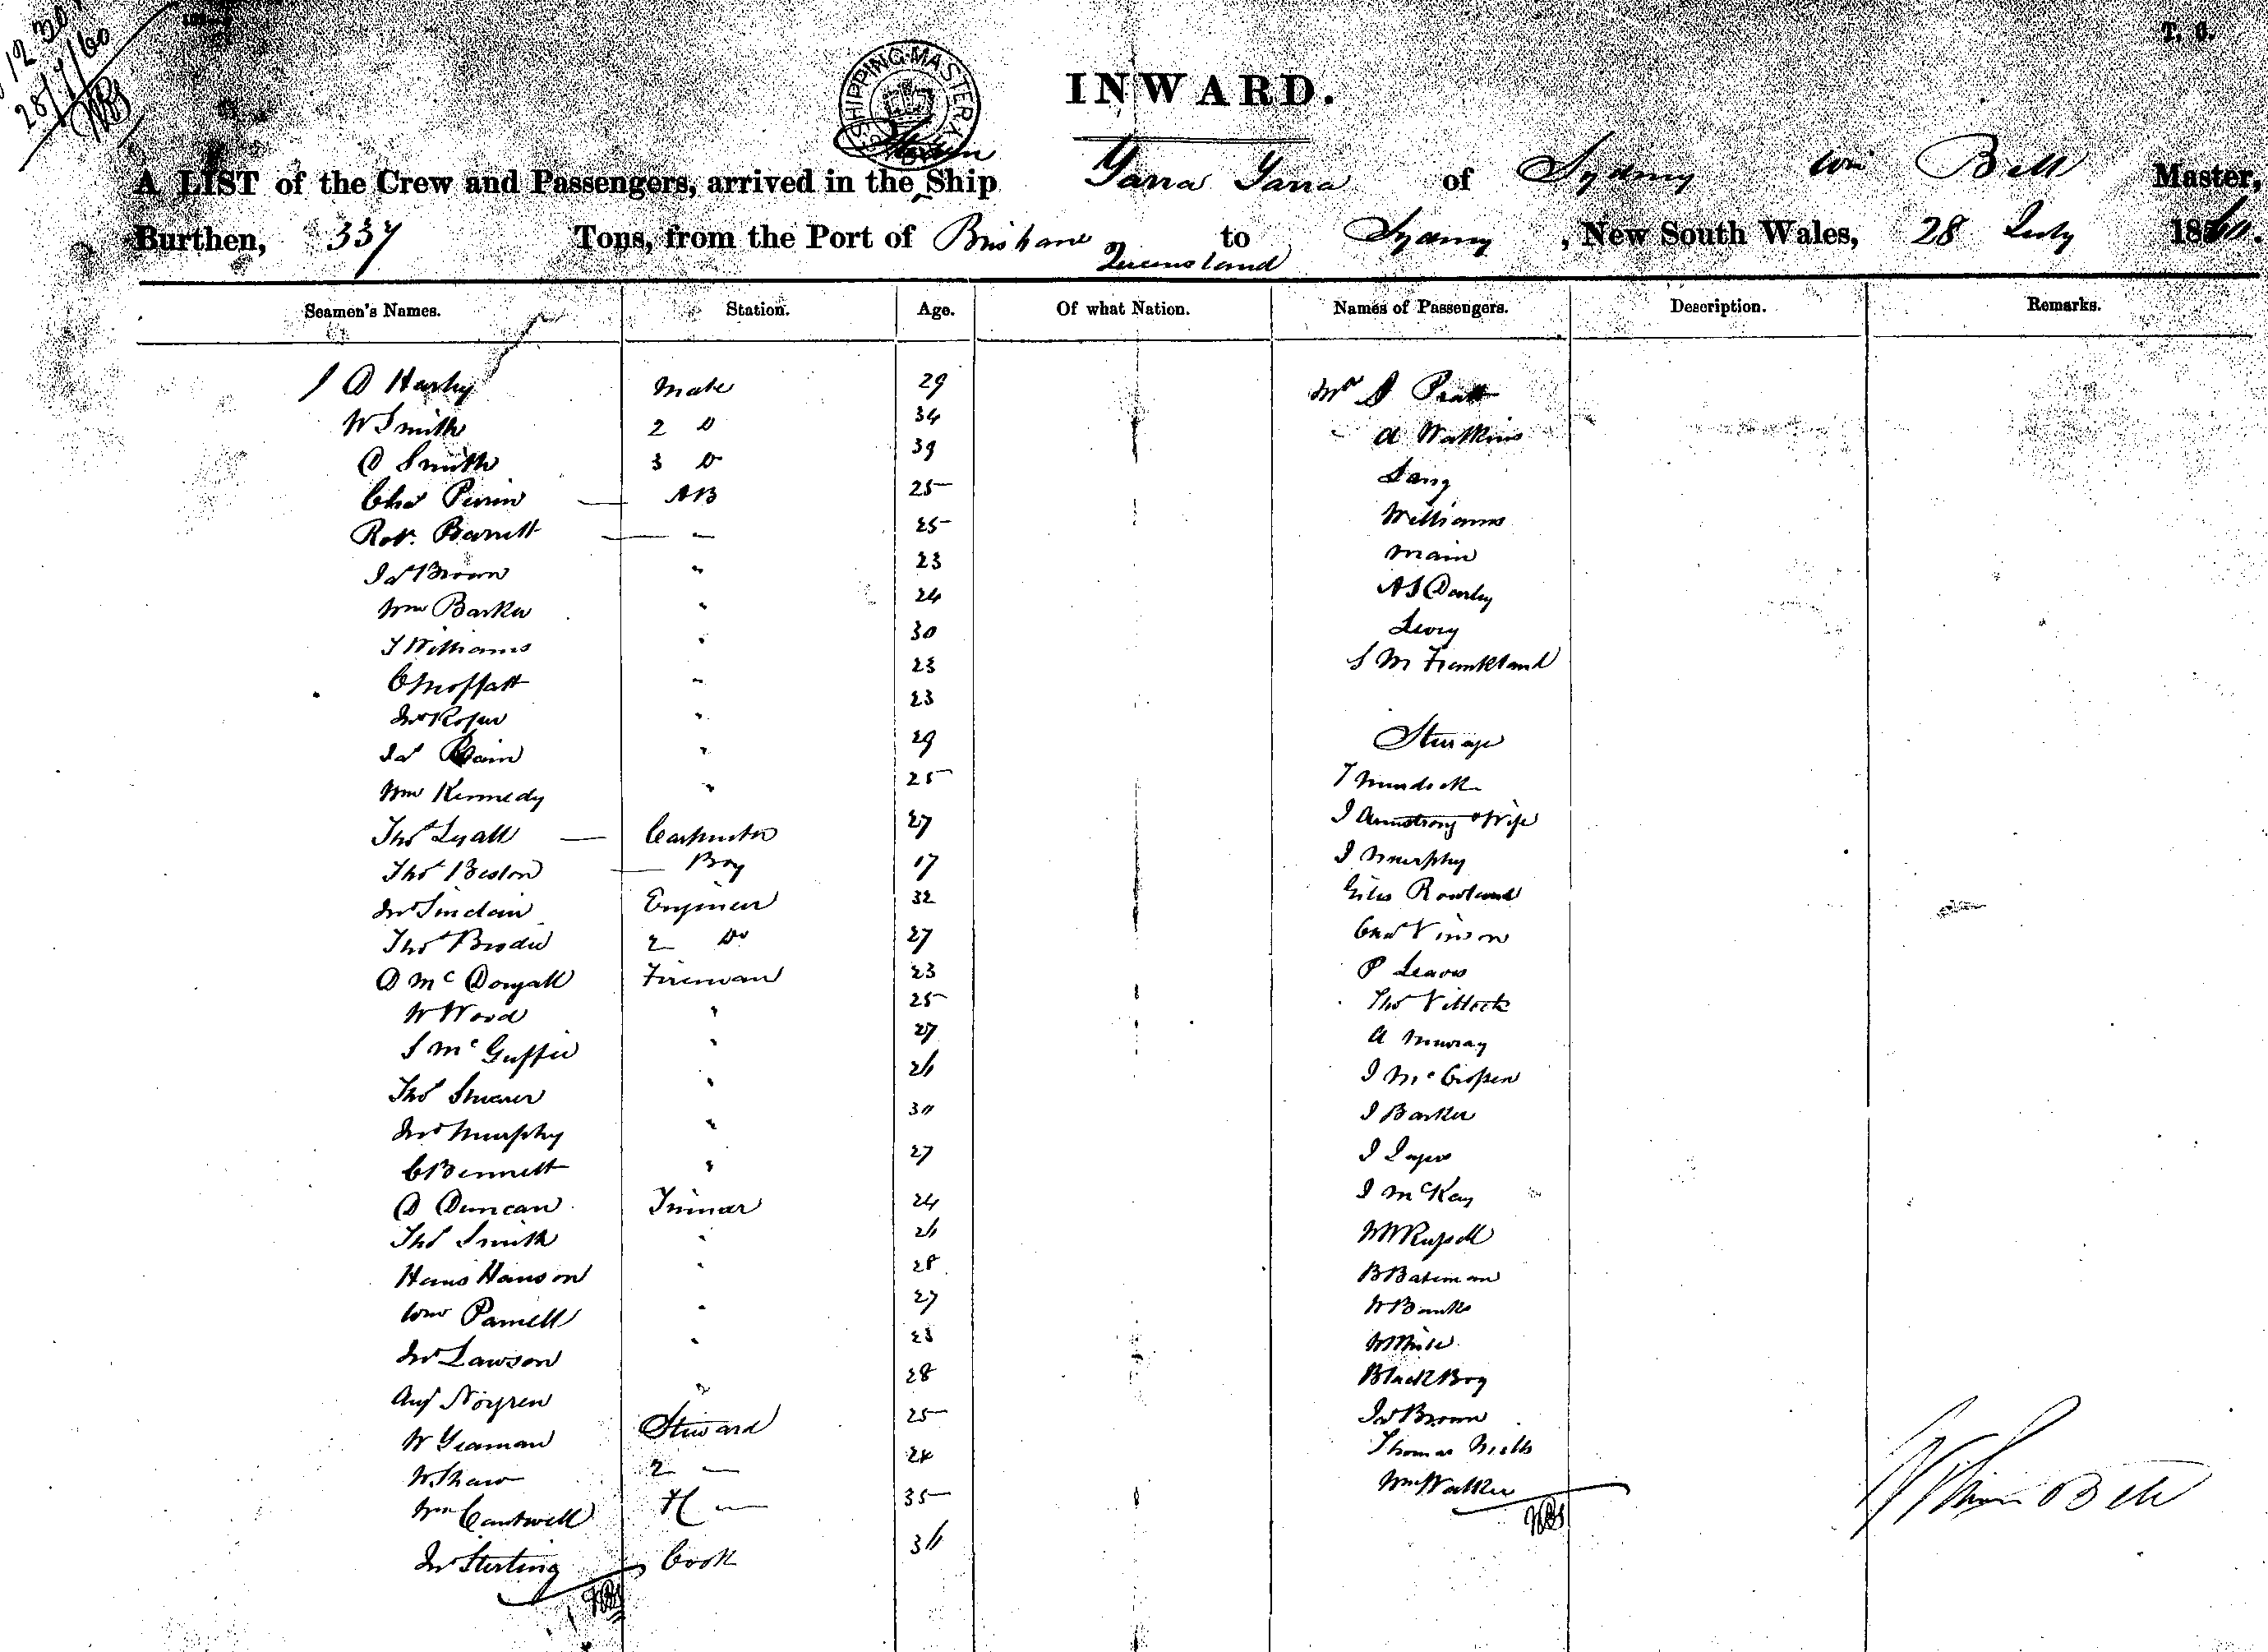 12 30
28/7/60
T. O.
SHIPPING MASTER
INWARD.
Steam
A LIST of the Crew and Passengers, arrived in the Ship Yarra Yarra of Sydney Wm Bell Master,
Burthen, 337 Tons, from the Port of Brisbane Queensland to Sydney, New South Wales, 28 July 1860.
Seamen's Names. Station. Age. Of what Nation. Names of Passengers. Description. Remarks.
J D Harley Mate 29 Mr D Pratt
W Smith 2 Do 34 " A Watkins
D Smith 3 Do 39 Lang
Chas Perrin — AB 25 Williams
Robt. Barnett — " 25 Main
Jas Brown " 23 A S Darley
Wm Barker " 24 Levey
J Williams " 30 S M Frankland
C Moffatt " 23
Jno Roper " 23
Jas Bain " 29 Steerage
Wm Kennedy " 25 T Murdock
Thos Lyall — Carpenter 27 J Armstrong & Wife
Thos Beston — Boy 17 J Murphy
Jno Sinclair Engineer 32 Giles Rowland
Thos Brodie 2 Do 27 Chas Vinson
D McDougall Fireman 23 P Leaves
W Wood " 25 Thos
S McGuffie " 27 A Murray
Thos Shearer " 26 J
Jno Murphy " 30 J Barker
C Bennett " 27 J
D Duncan Trimer 24 J McKay
Thos Smith " 26 W W Russell
Hans Hanson " 28 B Bateman
Wm Parnell " 27 W Banks
Jno Lawson " 23 W White
Aug Norgren " 28 Black Boy
W Yeaman Steward 25 Jas Brown
W Shaw 2 — 24 Thomas Wells
Wm Cantwell H — 35 Wm Walker
Jno Sterling Cook 36
William Bell